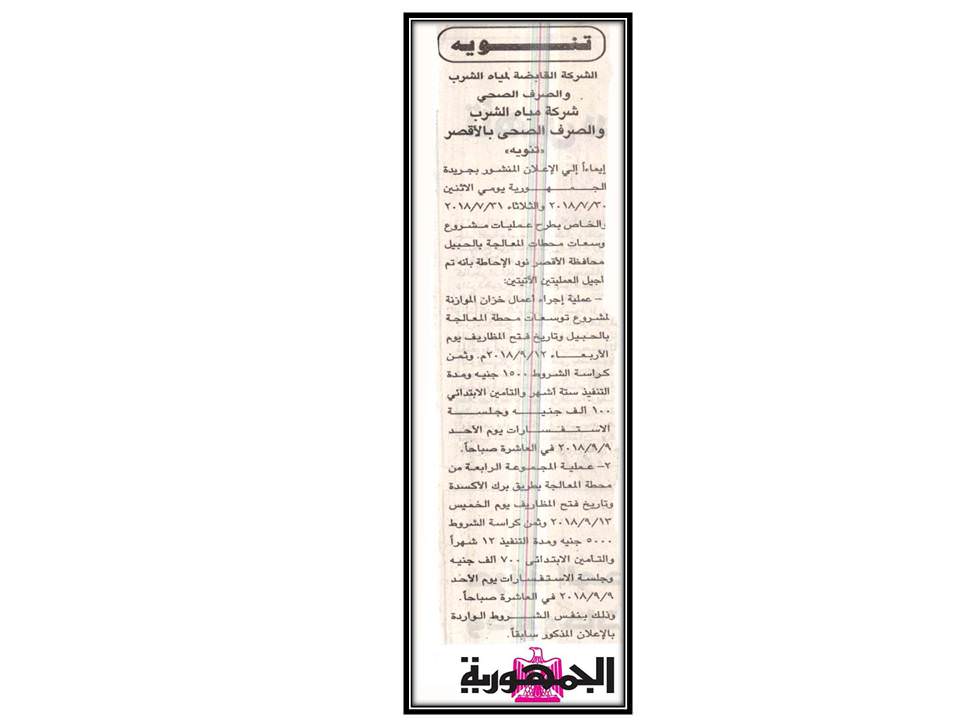 تنـــــويه
الشركة القابضة لمياه الشرب
والصرف الصحي
شركة مياه الشرب
والصرف الصحى بالأقصر
«تنويه»
إيماءاً إلي الإعلان المنشور بجريدة
الجـــمـــهـــورية يومي الاثنين
٢٠١٨/٧/٣٠ والثلاثاء ٢٠١٨/٧/٣١
والخاص بطرح عمليات مشروع
وسعات محطات المعالجة بالحبيل
محافظة الأقصر نود الإحاطة بانه تم
أجيل العمليتين الآتيتين:
– عملية إجراء أعمال خزان الموازنة
لمشروع توسعات محطة المعالجة
بالحبيل وتاريخ فتح المظاريف يوم
الأربعـــاء ٢٠١٨/٩/١٢م. وثمن
كراسة الشروط ١٥٠٠ جنيه ومدة
التنفيذ ستة أشهر والتأمين الابتدائي
١٠٠ ألف جنيـــه وجلســـة
الاستـفـسـارات يوم الأحـد
٢٠١٨/٩/٩ في العاشرة صباحاً.
٢– عملية المجموعة الرابعة من
محطة المعالجة بطريق برك الأكسدة
وتاريخ فتح المظاريف يوم الخميس
٢٠١٨/٩/١٣ وثمن كراسة الشروط
٥٠٠٠ جنيه ومدة التنفيذ ١٢ شهراً
والتأمين الابتدائى ٧٠٠ ألف جنيه
وجلسة الاستفسارات يوم الأحد
٢٠١٨/٩/٩ في العاشرة صباحاً.
وذلك بنفس الشـــروط الواردة
بالإعلان المذكور سابقاً.
الجمهورية